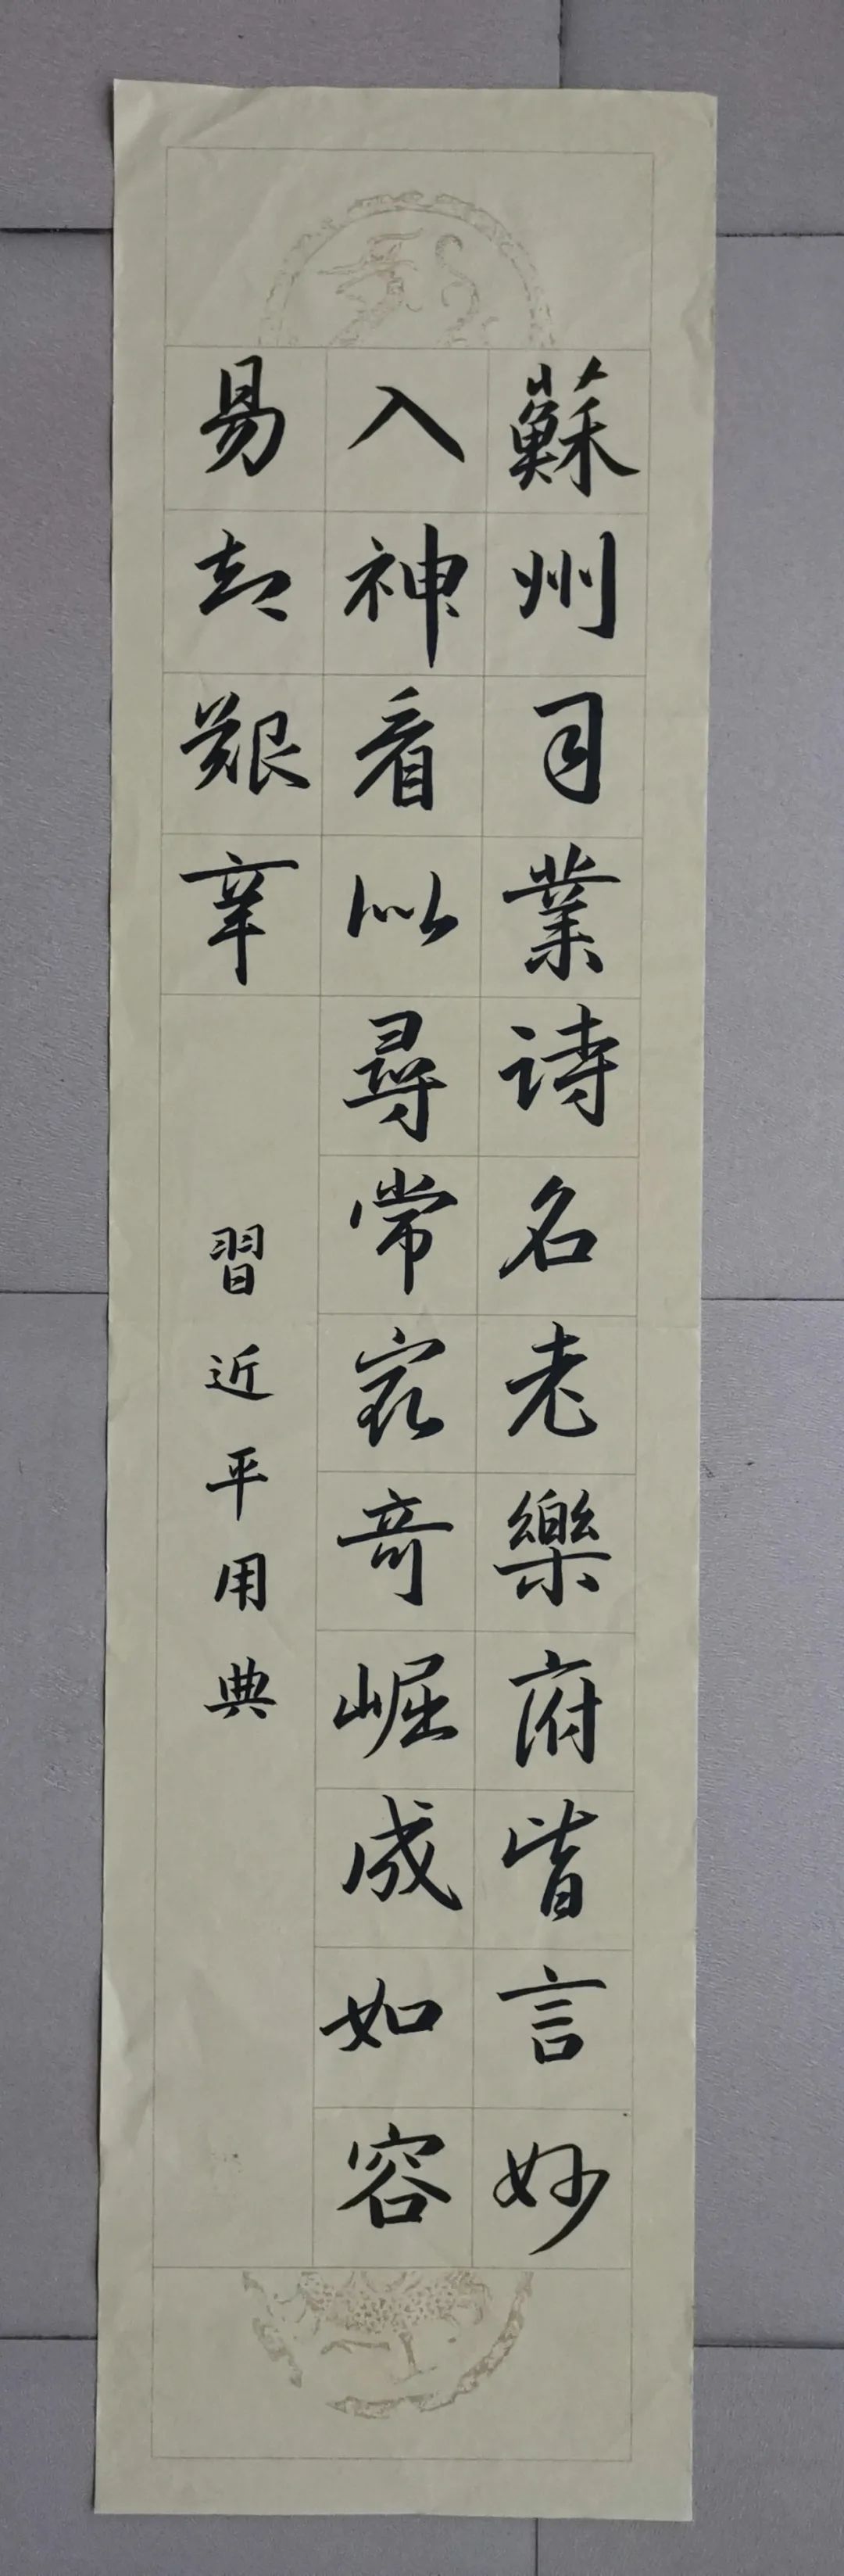 蘇州司業詩名老樂府皆言妙
入神看似尋常最奇崛成如容
易却艱辛
習近平用典